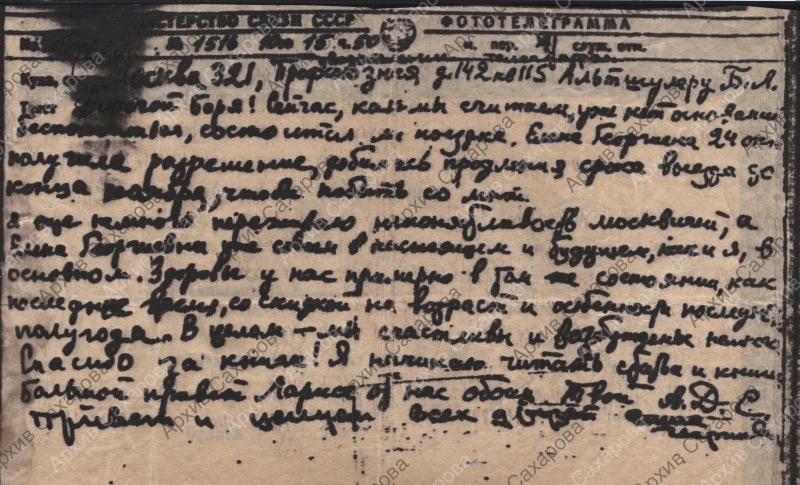 МИНИСТЕРСТВО СВЯЗИ СССР ФОТОТЕЛЕГРАММА
№ 1516 10 сл 15 ч 50 м. пер. служ. отм.
Куда, Москва 321, проезд д 142 кв 115 Альтшулеру Б. Л.
Текст Дорогой Боря! Сейчас, как мы считаем, уже нет основания
беспокоиться, состоится ли поездка. Елена Георгиевна 24 окт.
получила разрешение, добилась продления срока выезда до
конца ноября, чтобы побыть со мной.
Я еще немного переживаю москвичей, а
Елена Георгиевна уже совсем в настоящем и будущем, как и я, в
основном. Здоровье у нас примерно в том же состоянии, как
последнее время, со скидкой на возраст и особенности последн.
полугода. В целом – мы счастливы и возбуждены
Спасибо за книги! Я начинаю читать сразу
Большой привет Ларисе от нас обоих. Твой А. Д. С.
Привет и целую всех
Архив Сахарова